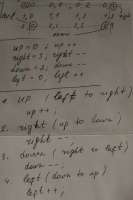 up = 0 ; up ++
right = 3 ; right --
down = 3 ; down --
left = 0 ; left ++
1. up (left to right)
up ++ ;
2. right (up to down)
right --
3. down (right to left)
down -- ;
4. left (down to up)
left ++ ;